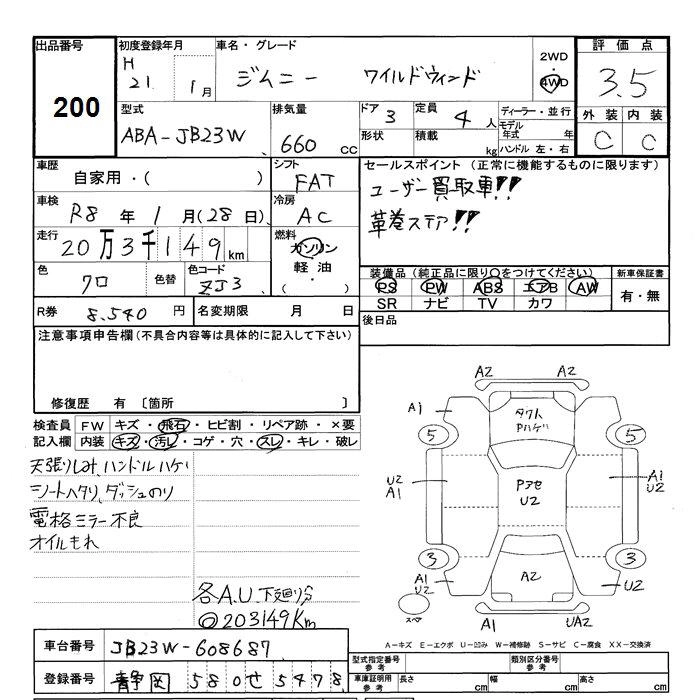 出品番号 初度登録年月 車名・グレード 評価点
200
H 21年 1月 ジムニー ワイルドウィンド 2WD 4WD 3.5
型式 排気量 ドア 定員 ディーラー・並行 外装 内装
ABA-JB23W 660cc 3 4人 モデル年式 年 C C
形状 積載 kg ハンドル 左・右
車歴 シフト セールスポイント(正常に機能するものに限ります)
自家用・( ) FAT ユーザー買取車!!
車検 冷房 革巻ステア!!
R8年1月(28日) AC
走行 燃料
20万3千149km ガソリン 軽油・( )
色 色替 色コード 装備品(純正品に限り○をつけてください) 新車保証書
クロ ZJ3 PS PW ABS エアB AW 有・無
SR ナビ TV カワ
R券 8,540円 名変期限 月 日 後日品
注意事項申告欄(不具合内容等は具体的に記入して下さい)
修復歴 有 〔箇所 〕
検査員 FW キズ・飛石・ヒビ割・リペア跡・×要
記入欄 内装 キズ・汚レ・コゲ・穴・スレ・キレ・破レ
天張りしみ、ハンドルハゲ
シートヘタリ、ダッシュのり
電格ミラー不良
オイルもれ
各A.U 下廻り分
◎203149Km
A2 A2
A1
タクト
Pハゲ
5 5
U2
A1
Pアセ
U2
A1
U2
3 3
A1
U2
A2
U2
スペア
A1 UA2
A-キズ E-エクボ U-凹み W-補修跡 S-サビ C-腐食 XX-交換済
車台番号 JB23W-608687
型式指定番号 参考 類別区分番号 参考
登録番号 静岡 580 せ 5478
車庫証明用 参考 長さ cm 幅 cm 高さ cm